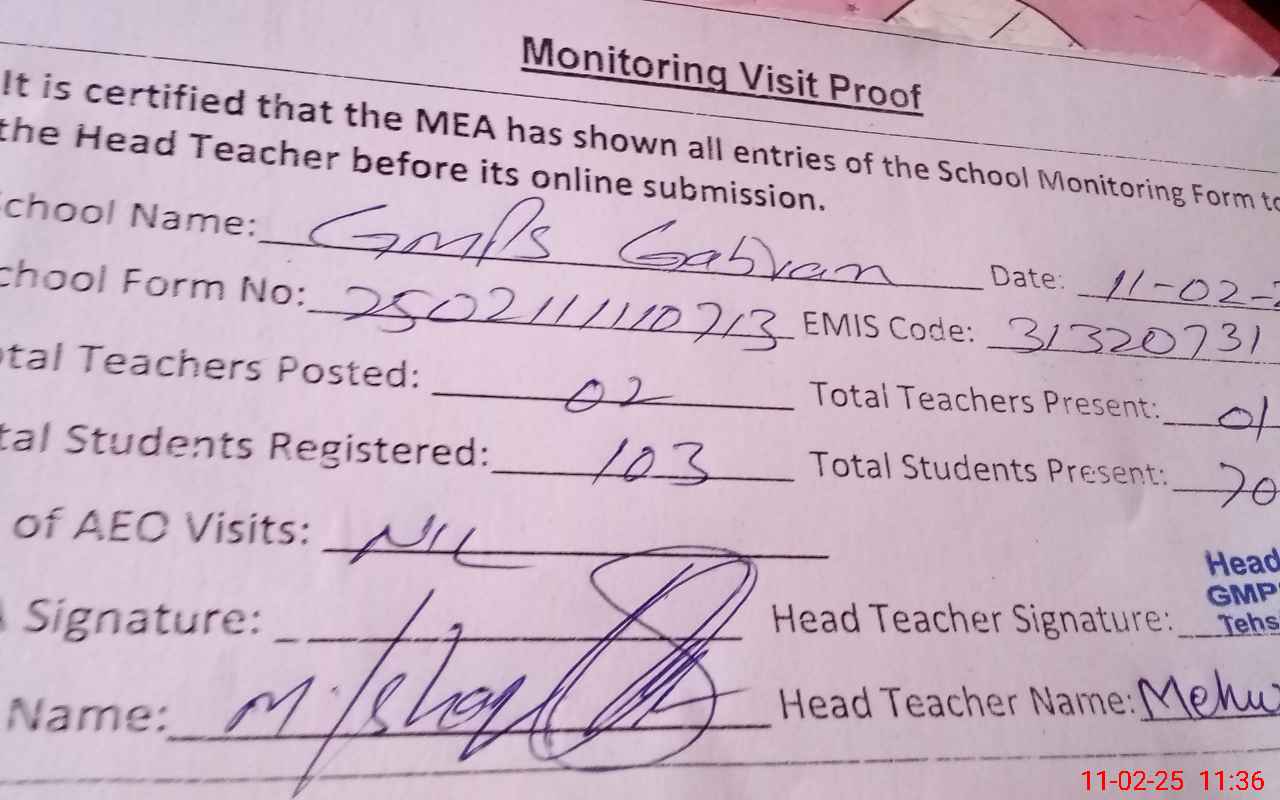 Monitoring Visit Proof
It is certified that the MEA has shown all entries of the School Monitoring Form to
the Head Teacher before its online submission.
chool Name: GMPS Gabran Date: 11-02-
chool Form No: 2502111110713 EMIS Code: 31320731
tal Teachers Posted: 02 Total Teachers Present: 01
tal Students Registered: 103 Total Students Present: 70
of AEO Visits: NIL
Signature: Head Teacher Signature:
Head
GMPS
Tehs
Name: M. Ishaq Head Teacher Name: Mehw
11-02-25 11:36